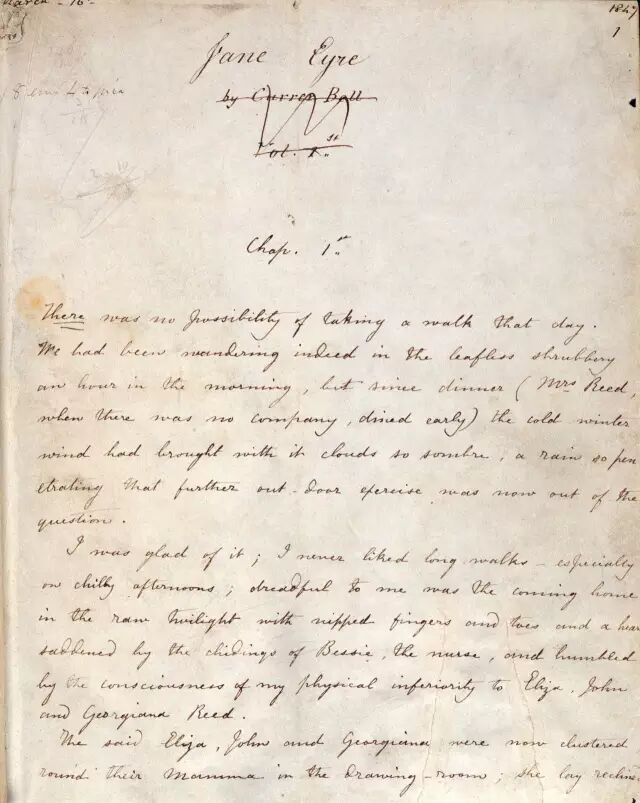 March - 16
1847
1
Jane Eyre
by Currer Bell
Vol. 1.st
Chap. 1.st
There was no possibility of taking a walk that day.
We had been wandering indeed in the leafless shrubbery
an hour in the morning, but since dinner (Mrs Reed,
when there was no company, dined early) the cold winter
wind had brought with it clouds so sombre, a rain so pen
etrating that further out-door exercise was now out of the
question.
I was glad of it; I never liked long walks - especially
on chilly afternoons; dreadful to me was the coming home
in the raw twilight with nipped fingers and toes and a hear
saddened by the chidings of Bessie, the nurse, and humbled
by the consciousness of my physical inferiority to Eliza, John
and Georgiana Reed.
The said Eliza, John and Georgiana were now clustered
round their Mamma in the drawing-room; she lay recline